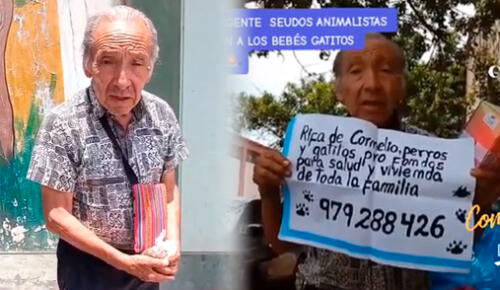 GENTE SEUDOS ANIMALISTAS
N A LOS BEBÉS GATITOS
Rifa de Cornelio, perros
y gatitos pro Fondos
para salud y vivienda
de toda la Familia
979288426